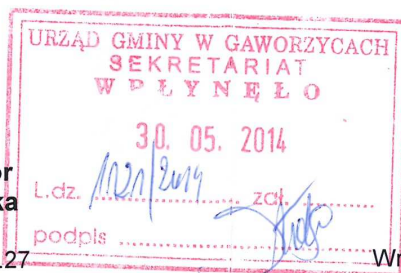 URZĄD GMINY W GAWORZYCACH
SEKRETARIAT
WPŁYNĘŁO
30. 05. 2014
or
L.dz. 1121/2014 zał.
ka
podpis
27 Wr